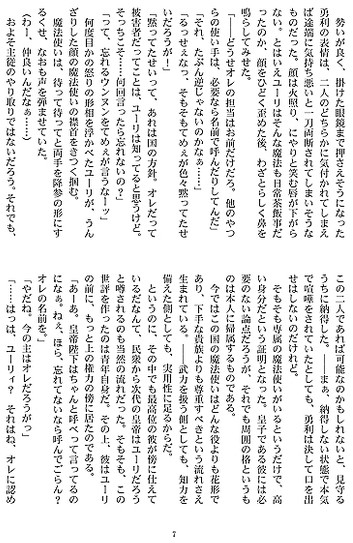 勢いが良く、掛けた眼鏡まで押さえそうになった
勇利の表情は、二人のどちらかに気付かれてしまえ
ば途端に気持ち悪いと一刀両断されてしまいそうな
ものだった。顔は火照り、にやりと笑む唇が下がら
ない。とはいえユーリはそんな魔法も日常茶飯事だ
ったのか、顔をひどく歪めた後、わざとらしく鼻を
鳴らしてみせた。
「――どうせオレの担当はお前だけだろ。他のやつ
らの使い手は、必要なら名前で呼んだりしてんだ」
「それ、たぶん逆じゃないのかなぁ……」
「るっせぇなっ、そもそもてめぇが色々黙ってたせ
いだろうが!」
「黙ってたせいって、あれは国の方針。オレだって
被害者だってことは、ユーリは知ってると思うけど。
そっちこそ……何回言ったら忘れないの?」
「って、忘れるウンヌンをてめぇが言うなーッ」
何度目かの怒りの形相を浮かべたユーリが、うん
ざりした顔の魔法使いの襟首をきつく掴む。
魔法使いは、待って待ってと両手を降参の形にす
るくせ、なおも声を弾ませていた。
(わー、仲良いんだなぁ……)
およそ主従のやり取りではないだろう。それでも、
この二人であれば可能なのかもしれないと、見守る
うちに納得した。――まぁ、納得しない状態で本気
で喧嘩をされていたとしても、勇利は決して口を出
せはしないのだけれど。
そもそも専属の魔法使いがいるというだけで、高
い身分だという証明となった。皇子である彼には必
要のない論点だろうが、それでも周囲の格というも
のは本人に帰属するものである。
今ではこの国の魔法使いはどんな役よりも花形で
あり、下手な貴族よりも尊重すべきという流れさえ
生まれている。――武力を扱う側としても、知力を
備えた側としても、実用性に足るからだ。
というのに、その中でも最高位の彼が傍に仕えて
いるだなんて、民衆から次代の皇帝はユーリだろう
と噂されるのも当然の流れだった。そもそも、この
世評を作ったのは青年自身だ。その上、彼はユーリ
の前に、もっと上の権力の傍に居たのである。
「あーあ。皇帝陛下はちゃんと呼べって言ってるの
になぁ。ねぇ、ほら、忘れてないなら呼んでごらん?
オレの名前を。」
「やだね。今の主はオレだろうがっ」
「……はっは、ユーリィ? それはね、オレに認め
7